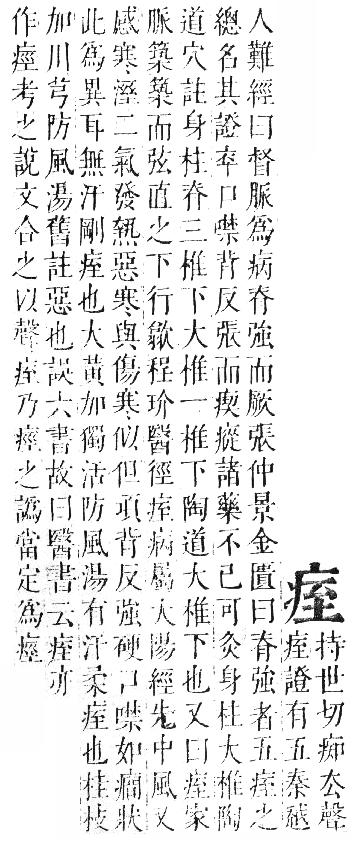 痓
持世切痴去聲
痓證有五秦越
人難經曰督脈爲病脊強而厥張仲景金匱曰脊強者五痓之
總名其證卒口噤背反張而瘈瘲諸藥不已可灸身柱大椎陶
道穴註身柱脊三椎下大椎一椎下陶道大椎下也又曰痓家
脈築築而弦直之下行歙程玠醫徑痓病屬大陽經先中風又
感寒溼二氣發熱惡寒與傷寒似但項背反強硬口噤如癇狀
此爲異耳無汗剛痓也大黃加獨活防風湯有汗柔痓也桂枝
加川芎防風湯舊註惡也誤六書故曰醫書云痓亦
作痙考之說文合之以聲痓乃痙之譌當定爲痙